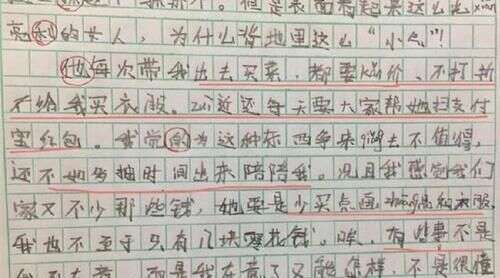 但是表面看起来这么
亮和的女人，为什么背地里这么"小气"！
他每次带我出去买菜，都要讲价，不打折
不给我买衣服。zui近还每天要大家帮她扫支付
宝红包。我觉的为这种东西争来 去不值得，
还不如多抽时间出来陪陪我。况且我感觉我们
家又不少那些钱，她要是少买点 的衣服，
我也不至于只有几块零花钱。唉，有些事不是
不是很懂